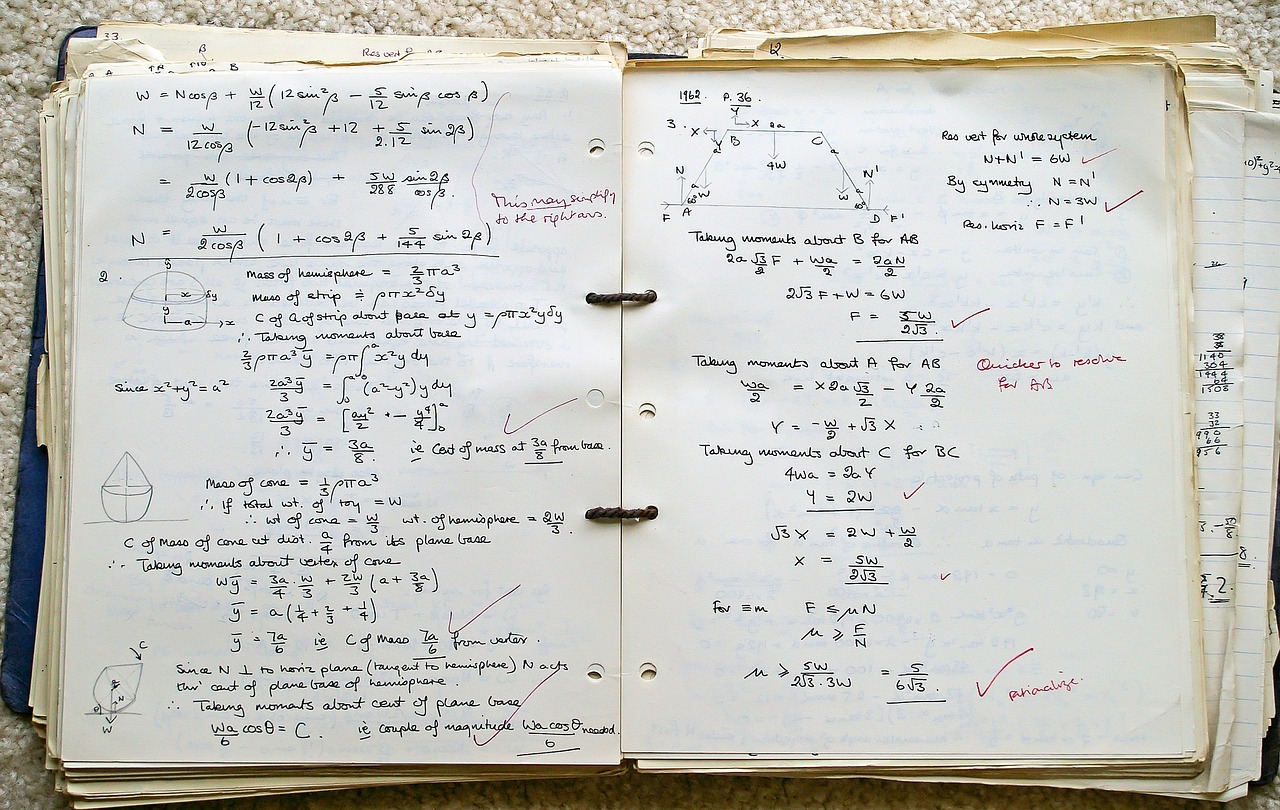 33.
β
Res vert
W = Ncosβ + W/12 (12sin²β − 5/12 sinβ cosβ)
N = W/12cosβ (−12sin²β + 12 + 5/2.12 sin2β)
= W/2cosβ (1 + cos2β) + 5W/288 sin2β/cosβ.
This may simplify
to the right ans.
N = W/2cosβ (1 + cos2β + 5/144 sin2β)
2.
Mass of hemisphere = 2/3 πa³
Mass of strip ≑ ρπx²δy
C of G of strip about base at y = ρπx²yδy
∴ Taking moments about base
2/3 ρπa³ȳ = ρπ∫₀ᵃ x²y dy
Since x²+y²=a² 2a³ȳ/3 = ∫₀ᵃ (a²−y²)y dy
2a³ȳ/3 = [ay²/2 − y⁴/4]₀ᵃ
∴ ȳ = 3a/8. ie Cent of mass at 3a/8 from base.
Mass of cone = 1/3 ρπa³
∴ If total wt. of toy = W
∴ wt of cone = W/3 wt. of hemisphere = 2W/3.
C of Mass of cone at dist. a/4 from its plane base
∴ Taking moments about vertex of cone
Wȳ = 3a/4 . W/3 + 2W/3 (a + 3a/8)
ȳ = a(1/4 + 2/3 + 1/4)
ȳ = 7a/6 ie C of Mass 7a/6 from vertex.
C
N
θ
W
Since N ⊥ to horiz plane (tangent to hemisphere) N acts
thro' cent of plane base of hemisphere.
∴ Taking moments about cent of plane base
Wa/6 cosθ = C. ie couple of magnitude Wa cosθ/6 needed.
12.
1962. P. 36.
3.
Y
X 2a
X B C
Y a a
4W
N a a N'
W W
60° 60°
F A D F'
Res vert for whole system
N+N' = 6W
By symmetry N = N'
∴ N = 3W
Res. horiz F = F'
Taking moments about B for AB
2a √3/2 F + Wa/2 = 2aN/2
2√3 F + W = 6W
F = 5W/2√3.
Taking moments about A for AB
Quicker to resolve
for AB
Wa/2 = X 2a √3/2 − Y 2a/2
Y = −W/2 + √3 X
Taking moments about C for BC
4Wa = 2aY
Y = 2W
√3 X = 2W + W/2
X = 5W/2√3
For ≡m F ≤ μN
μ ≥ F/N
μ ≥ 5W/2√3.3W = 5/6√3.
rationalize.
38
38
1140
304
1444
64
1508
33
32
990
66
956